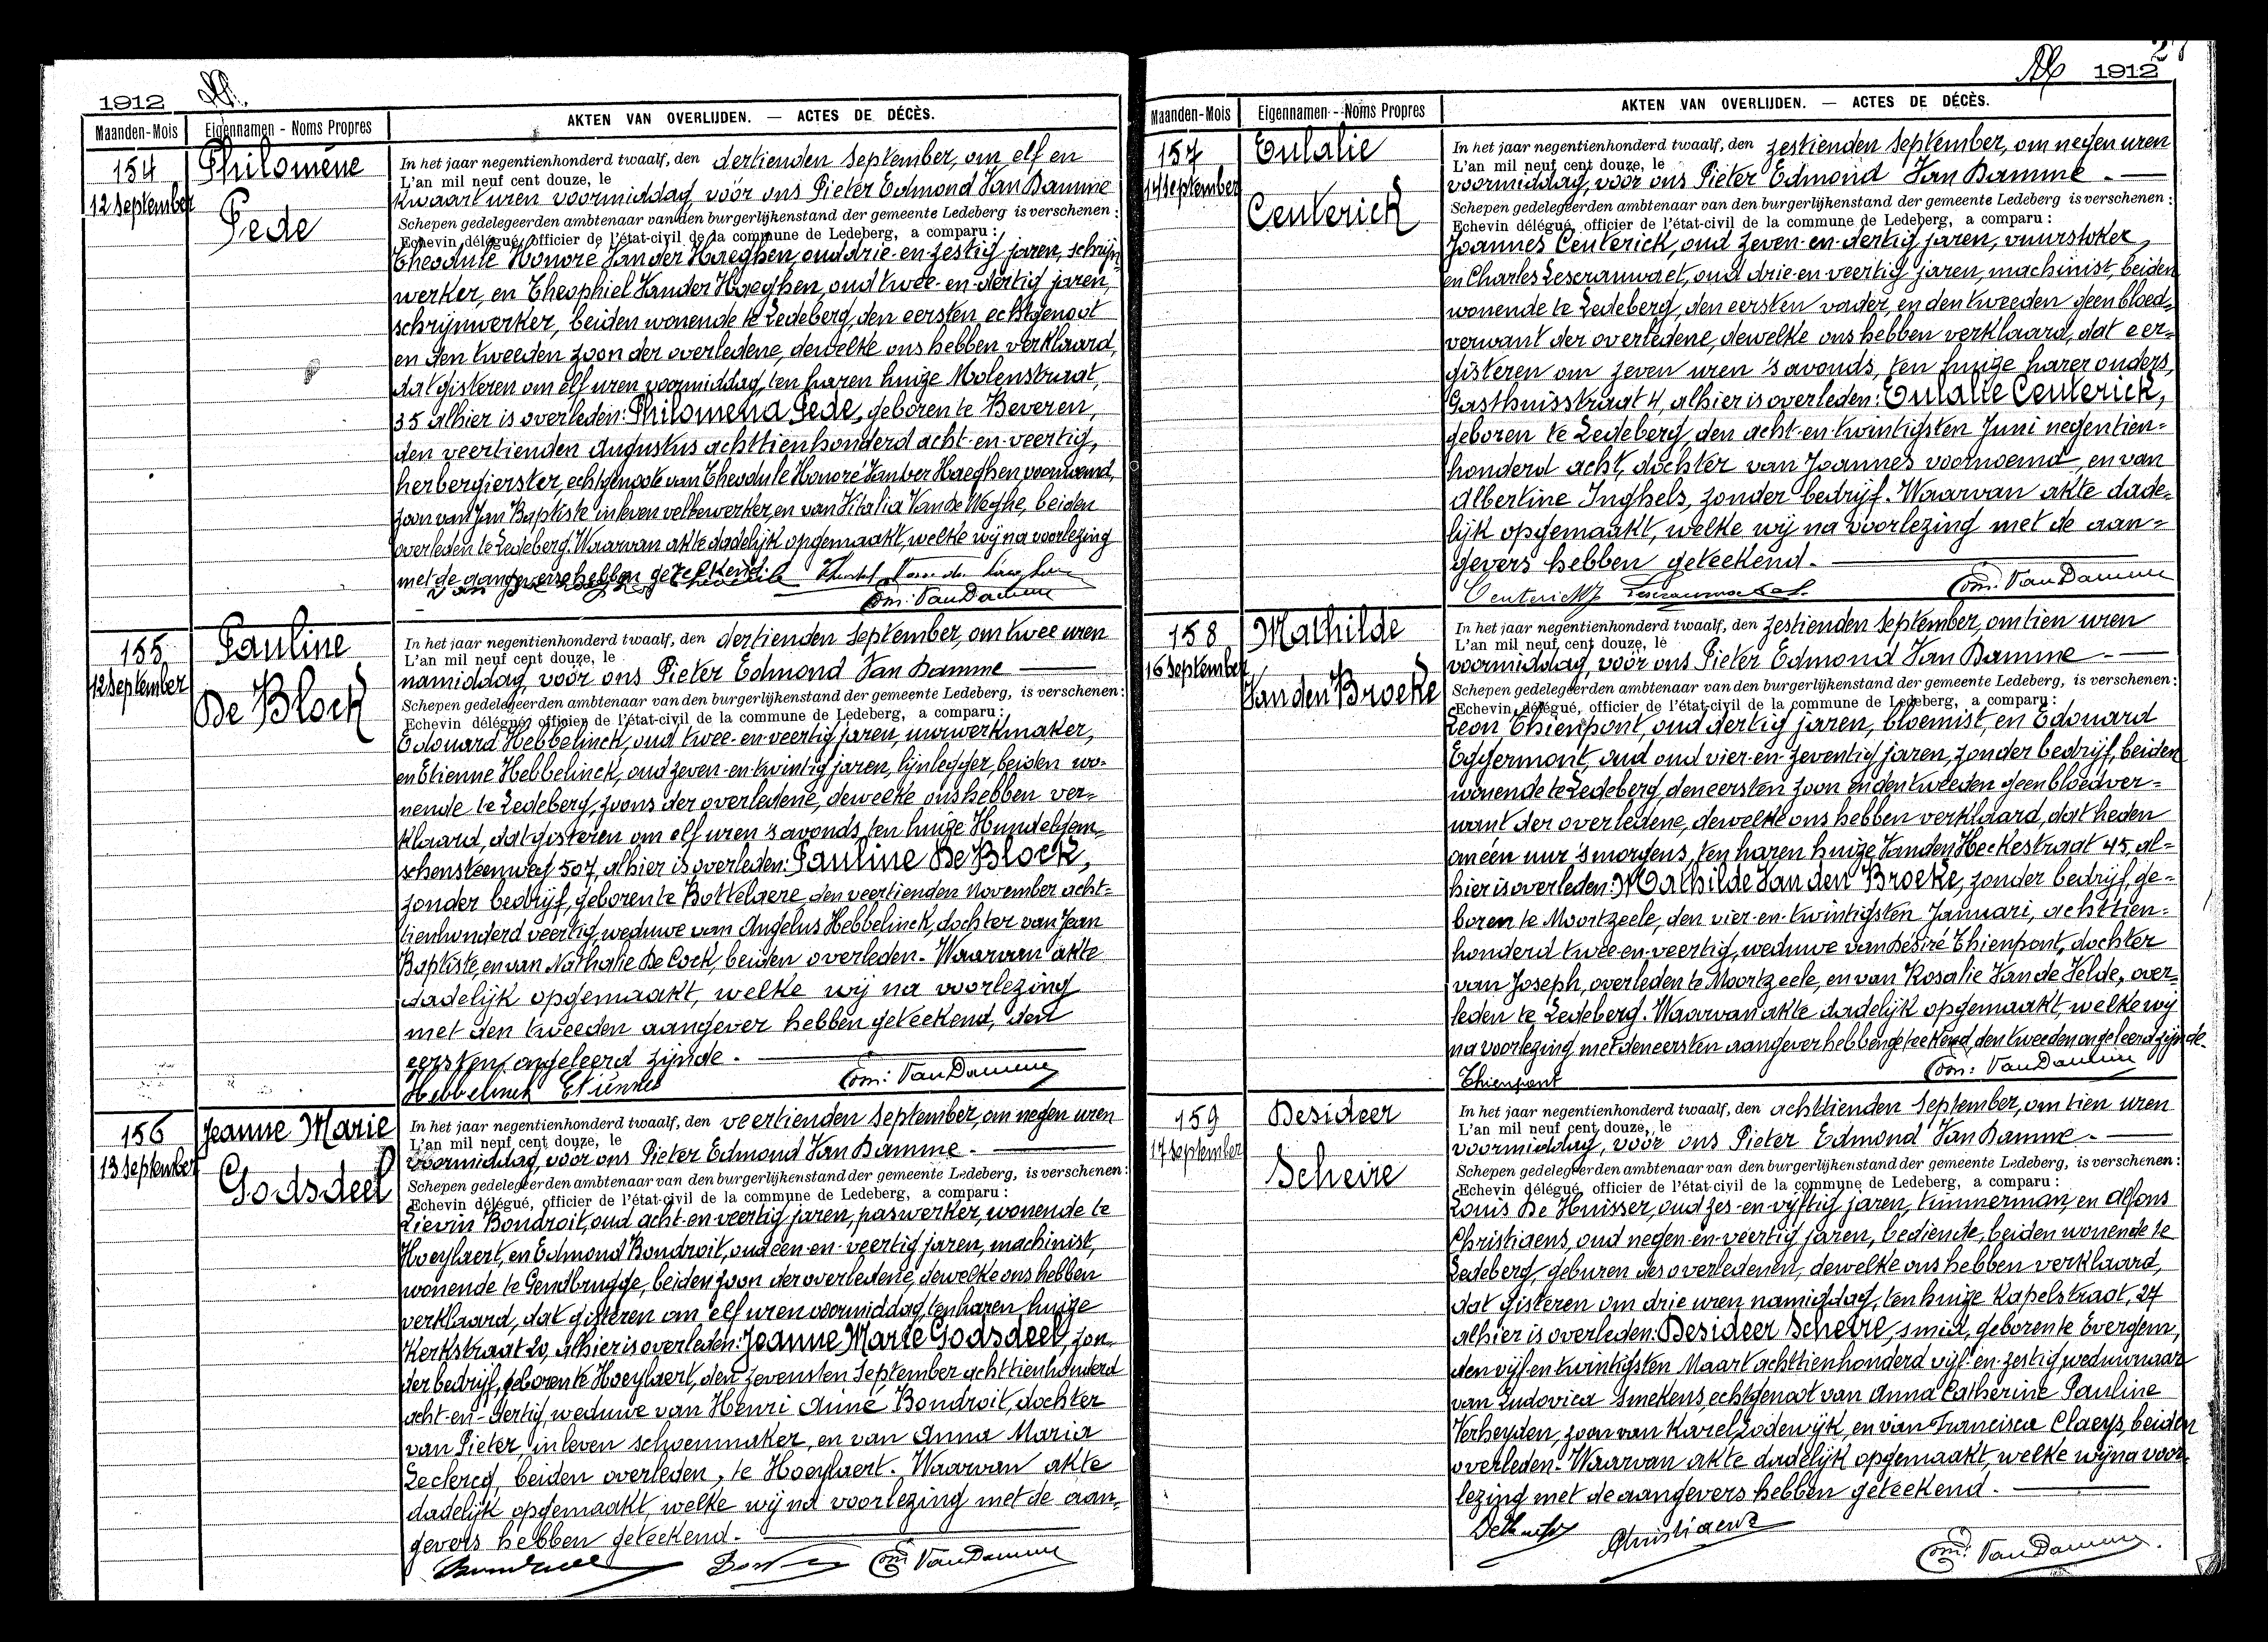 1912
Maanden-Mois
Eigennamen - Noms Propres
AKTEN VAN OVERLIJDEN. — ACTES DE DÉCÈS.
154
12 September
Philomène
Pede
In het jaar negentienhonderd twaalf, den dertienden September, om elf en
L'an mil neuf cent douze, le
kwaart uren voormiddag, vóór ons Pieter Edmond Van Damme
Schepen gedelegeerden ambtenaar van den burgerlijkenstand der gemeente Ledeberg is verschenen :
Echevin délégué, officier de l'état-civil de la commune de Ledeberg, a comparu :
Theodule Honoré Van der Haeghen, oud drie-en-zestig jaren, schrijn-
werker, en Theophiel Van der Haeghen, oud twee-en-dertig jaren,
schrijnwerker, beiden wonende te Ledeberg, den eersten echtgenoot
en den tweeden zoon der overledene, dewelke ons hebben verklaard,
dat gisteren om elf uren voormiddag, ten haren huize Molenstraat,
35 alhier is overleden: Philomena Pede, geboren te Beveren,
den veertienden Augustus achttienhonderd acht-en-veertig,
herbergierster, echtgenote van Theodule Honoré Van der Haeghen, voornoemd,
zoon van Jan Baptiste in leven velbewerker, en van Vitalia Van de Weghe, beiden
overleden te Ledeberg. Waarvan akte dadelijk opgemaakt, welke wij na voorlezing
met de aangevers hebben geteekend.
Edm: Van Damme
155
12 September
Pauline
De Block
In het jaar negentienhonderd twaalf, den dertienden September, om twee uren
L'an mil neuf cent douze, le
namiddag, vóór ons Pieter Edmond Van Damme
Schepen gedelegeerden ambtenaar van den burgerlijkenstand der gemeente Ledeberg, is verschenen :
Echevin délégué, officier de l'état-civil de la commune de Ledeberg, a comparu :
Edouard Hebbelinck, oud twee-en-veertig jaren, uurwerkmaker,
en Etienne Hebbelinck, oud zeven-en-twintig jaren, lijnlegger, beiden wo-
nende te Ledeberg, zoons der overledene, dewelke ons hebben ver-
klaard, dat gisteren om elf uren 's avonds, ten huize Hundelgem-
schensteenweg 507, alhier is overleden: Pauline De Block,
zonder bedrijf, geboren te Bottelaere, den veertienden November acht-
tienhonderd veertig, weduwe van Angelus Hebbelinck, dochter van Jean
Baptiste, en van Nathalie De Cock, beiden overleden. Waarvan akte
dadelijk opgemaakt, welke wij na voorlezing
met den tweeden aangever hebben geteekend, den
eersten ongeleerd zijnde.
Hebbelinck Etienne Edm: Van Damme
156
13 September
Jeanne Marie
Godsdeel
In het jaar negentienhonderd twaalf, den veertienden September, om negen uren
L'an mil neuf cent douze, le
voormiddag, vóór ons Pieter Edmond Van Damme.
Schepen gedelegeerden ambtenaar van den burgerlijkenstand der gemeente Ledeberg, is verschenen :
Echevin délégué, officier de l'état-civil de la commune de Ledeberg, a comparu :
Lievin Bondroit, oud acht-en-veertig jaren, paswerker, wonende te
Hoeylaert, en Edmond Bondroit, oud een-en-veertig jaren, machinist,
wonende te Gendbrugge, beiden zoon der overledene, dewelke ons hebben
verklaard, dat gisteren om elf uren voormiddag, ten haren huize
Kerkstraat 20, alhier is overleden: Jeanne Marie Godsdeel, zon-
der bedrijf, geboren te Hoeylaert, den zevensten September achttienhonderd
acht-en-dertig, weduwe van Henri Aimé Bondroit, dochter
van Pieter, in leven schoenmaker, en van Anna Maria
Leclercq, beiden overleden, te Hoeylaert. Waarvan akte
dadelijk opgemaakt, welke wij na voorlezing met de aan-
gevers hebben geteekend.
Edm: Van Damme
1912
Maanden-Mois
Eigennamen - Noms Propres
AKTEN VAN OVERLIJDEN. — ACTES DE DÉCÈS.
157
14 September
Eulalie
Ceuterick
In het jaar negentienhonderd twaalf, den zestienden September, om negen uren
L'an mil neuf cent douze, le
voormiddag, vóór ons Pieter Edmond Van Damme.
Schepen gedelegeerden ambtenaar van den burgerlijkenstand der gemeente Ledeberg is verschenen :
Echevin délégué, officier de l'état-civil de la commune de Ledeberg, a comparu :
Joannes Ceuterick, oud zeven-en-dertig jaren, vuurstoker,
en Charles Lescrauwaet, oud drie-en-veertig jaren, machinist, beiden
wonende te Ledeberg, den eersten vader, en den tweeden geen bloed-
verwant der overledene, dewelke ons hebben verklaard, dat eer-
gisteren om zeven uren 's avonds, ten huize harer ouders,
Gasthuisstraat 4, alhier is overleden: Eulalie Ceuterick,
geboren te Ledeberg, den acht-en-twintigsten Juni negentien-
honderd acht, dochter van Joannes voornoemd, en van
Albertine Inghels, zonder bedrijf. Waarvan akte dade-
lijk opgemaakt, welke wij na voorlezing met de aan-
gevers hebben geteekend.
Ceuterick J Lescrauwaet Edm: Van Damme
158
16 September
Mathilde
Van den Broeke
In het jaar negentienhonderd twaalf, den zestienden September, om tien uren
L'an mil neuf cent douze, le
voormiddag, vóór ons Pieter Edmond Van Damme.
Schepen gedelegeerden ambtenaar van den burgerlijkenstand der gemeente Ledeberg, is verschenen :
Echevin délégué, officier de l'état-civil de la commune de Ledeberg, a comparu :
Leon Thienpont, oud dertig jaren, bloemist, en Edouard
Eggermont, oud oud vier-en-zeventig jaren, zonder bedrijf, beiden
wonende te Ledeberg, den eersten zoon en den tweeden geen bloedver-
want der overledene, dewelke ons hebben verklaard, dat heden
om één uur 's morgens, ten haren huize Van den Heckestraat 45, al-
hier is overleden: Mathilde Van den Broeke, zonder bedrijf, ge-
boren te Moortzeele, den vier-en-twintigsten Januari, achttien-
honderd twee-en-veertig, weduwe van Désiré Thienpont, dochter
van Joseph, overleden te Moortzeele, en van Rosalie Van de Velde, over-
leden te Ledeberg. Waarvan akte dadelijk opgemaakt, welke wij
na voorlezing met den eersten aangever hebben geteekend, den tweeden ongeleerd zijnde.
Thienpont Edm: Van Damme
159
17 September
Desideer
Scheire
In het jaar negentienhonderd twaalf, den achttienden September, om tien uren
L'an mil neuf cent douze, le
voormiddag, vóór ons Pieter Edmond Van Damme.
Schepen gedelegeerden ambtenaar van den burgerlijkenstand der gemeente Ledeberg, is verschenen :
Echevin délégué, officier de l'état-civil de la commune de Ledeberg, a comparu :
Louis De Huisser, oud zes-en-vijftig jaren, timmerman, en Alfons
Christiaens, oud negen-en-veertig jaren, bediende, beiden wonende te
Ledeberg, geburen des overledenen, dewelke ons hebben verklaard,
dat gisteren om drie uren namiddag, ten huize Kapelstraat, 27
alhier is overleden: Desideer Scheire, smid, geboren te Evergem,
den vijf-en-twintigsten Maart achttienhonderd vijf-en-zestig, weduwnaar
van Ludovica Smekens, echtgenoot van Anna Catherine Pauline
Verheyden, zoon van Karel Lodewijk, en van Francisca Claeys, beiden
overleden. Waarvan akte dadelijk opgemaakt, welke wij na voor-
lezing met de aangevers hebben geteekend.
Christiaens
Edm: Van Damme